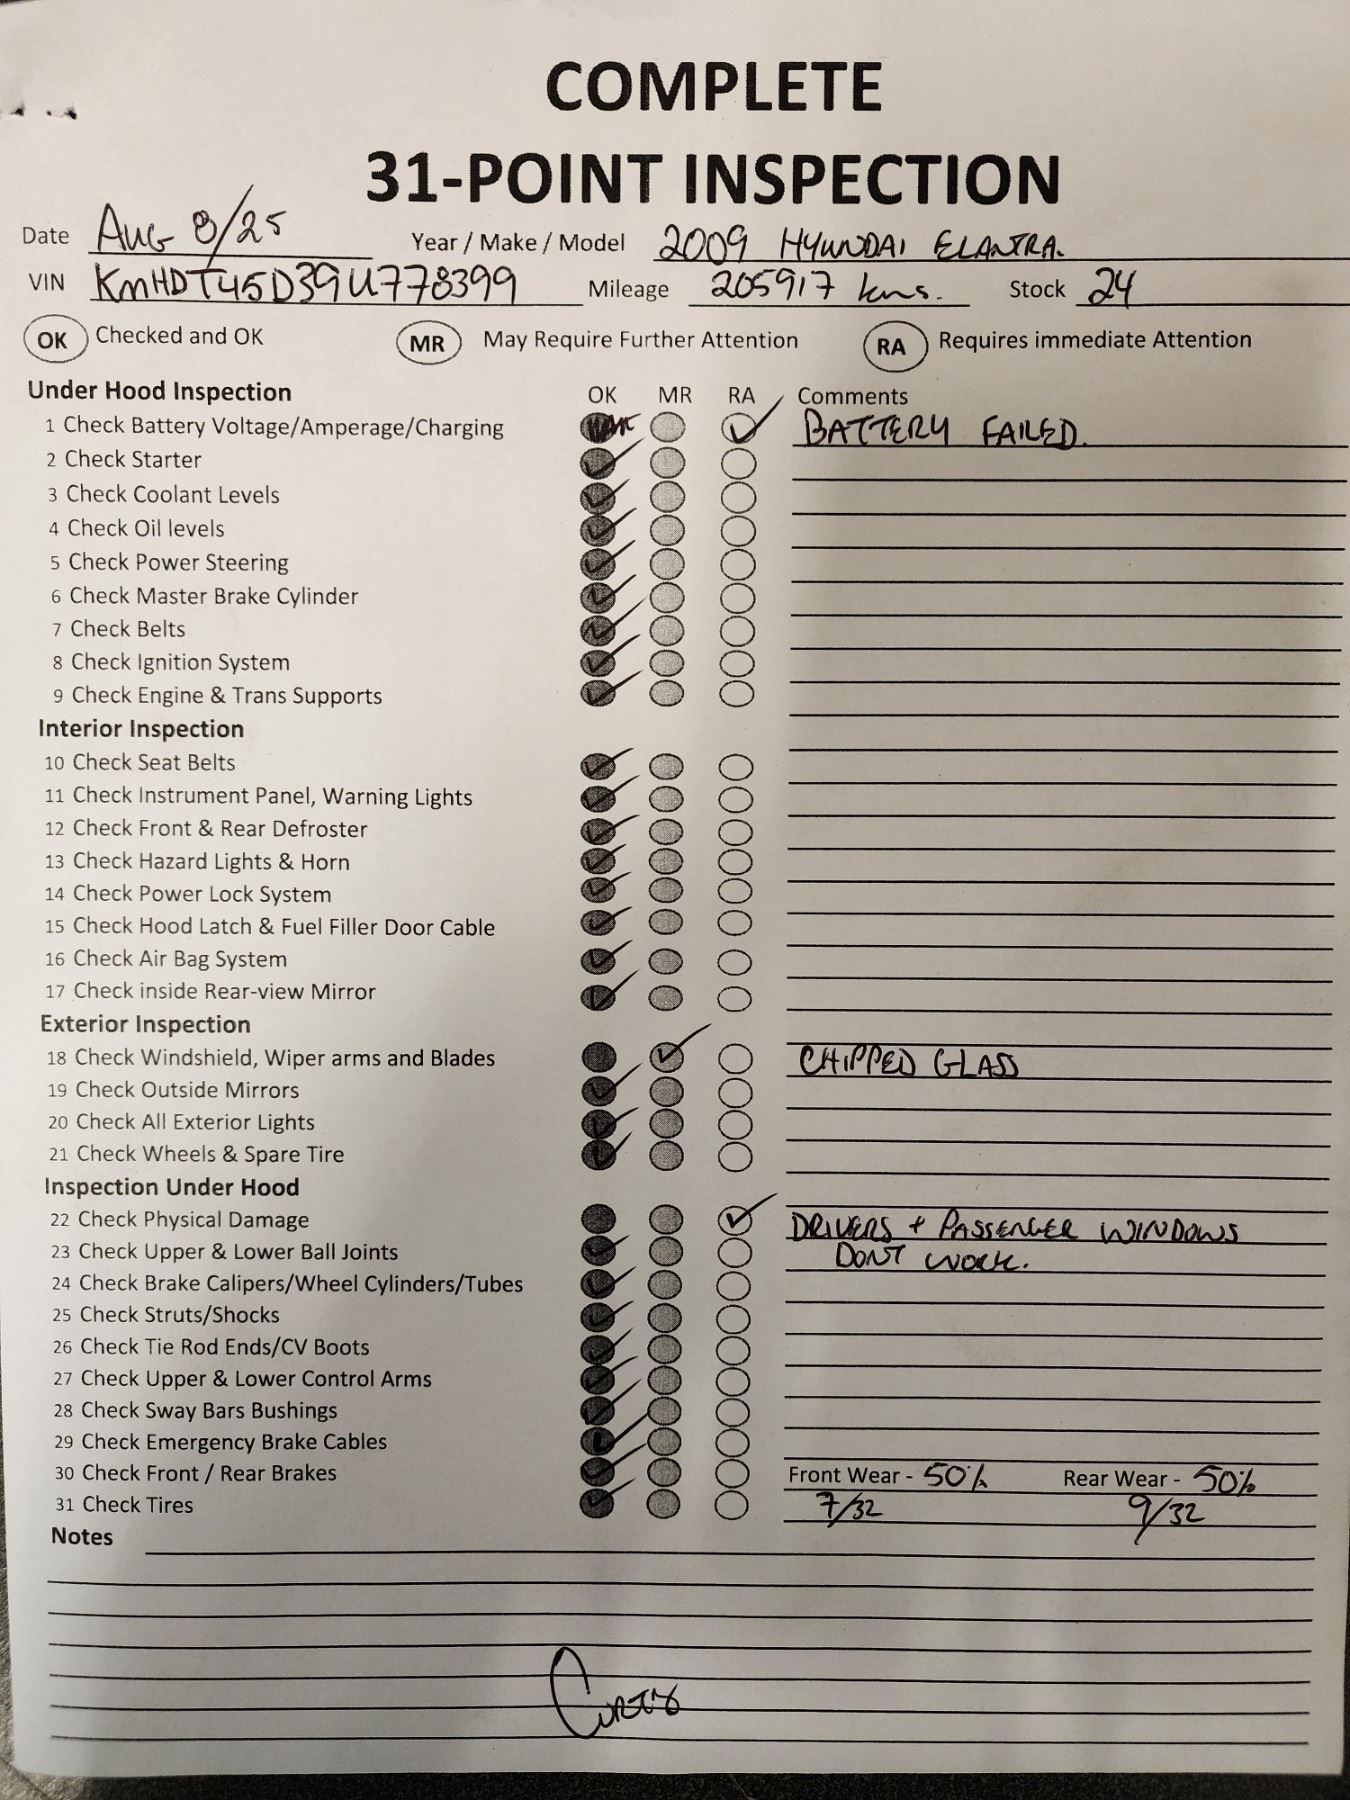 COMPLETE
31-POINT INSPECTION
Date Aug 8/25 Year / Make / Model 2009 HYUNDAI ELANTRA.
VIN KMHDT45D39U778399 Mileage 205917 kms. Stock 24
OK Checked and OK MR May Require Further Attention RA Requires immediate Attention
Under Hood Inspection OK MR RA Comments
1 Check Battery Voltage/Amperage/Charging BATTERY FAILED.
2 Check Starter
3 Check Coolant Levels
4 Check Oil levels
5 Check Power Steering
6 Check Master Brake Cylinder
7 Check Belts
8 Check Ignition System
9 Check Engine & Trans Supports
Interior Inspection
10 Check Seat Belts
11 Check Instrument Panel, Warning Lights
12 Check Front & Rear Defroster
13 Check Hazard Lights & Horn
14 Check Power Lock System
15 Check Hood Latch & Fuel Filler Door Cable
16 Check Air Bag System
17 Check inside Rear-view Mirror
Exterior Inspection
18 Check Windshield, Wiper arms and Blades CHIPPED GLASS
19 Check Outside Mirrors
20 Check All Exterior Lights
21 Check Wheels & Spare Tire
Inspection Under Hood
22 Check Physical Damage DRIVERS + PASSENGER WINDOWS
23 Check Upper & Lower Ball Joints DONT WORK.
24 Check Brake Calipers/Wheel Cylinders/Tubes
25 Check Struts/Shocks
26 Check Tie Rod Ends/CV Boots
27 Check Upper & Lower Control Arms
28 Check Sway Bars Bushings
29 Check Emergency Brake Cables
30 Check Front / Rear Brakes Front Wear - 50% Rear Wear - 50%
31 Check Tires 7/32 9/32
Notes
Curtis